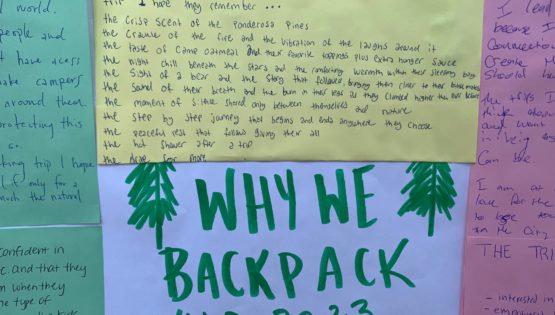 trip I hope they remember ...
the crisp scent of the Ponderosa Pines
the crackle of the fire and the vibration of the laughs around it
the taste of camp oatmeal and their favorite toppings plus extra hunger sauce
the night chill beneath the stars and the comforting warmth within their sleeping bags
the sight of a bear and the story that followed, bringing them closer to their
the sound of their breath and the burn in their legs as they climbed higher than ever before
the moment of shared only between themselves and nature
the step by step journey that begins and ends anywhere they choose
the peaceful rest that follows giving their all
the hot shower after a trip
the for more
WHY WE
BACKPACK
world.
people and
t have access
make campers
around them
protecting this
so.
king trip I hope
if only for a
much the natural
confident in
e. and that they
m when they
he type of
I lead
because I
Connection
Create
Should
the trips I
think about
and want
in being
Can be.
I am at
love for the
to
in the City
THE TRI
- interested in